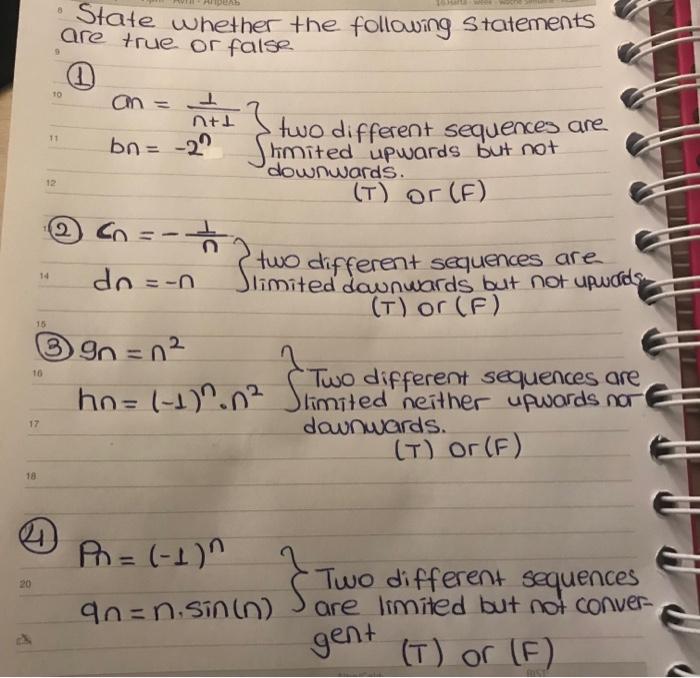 State whether the following statements
are true or false
①
an = 1/(n+1)
bn = -2^n
two different sequences are
limited upwards but not
downwards.
(T) or (F)
② Cn = - 1/n
dn = -n
two different sequences are
limited downwards but not upwards
(T) or (F)
③ gn = n²
hn = (-1)^n . n²
Two different sequences are
limited neither upwards nor
downwards.
(T) or (F)
④
Pn = (-1)^n
qn = n. sin(n)
Two different sequences
are limited but not conver-
gent (T) or (F)
8
9
10
11
12
14
15
16
17
18
20